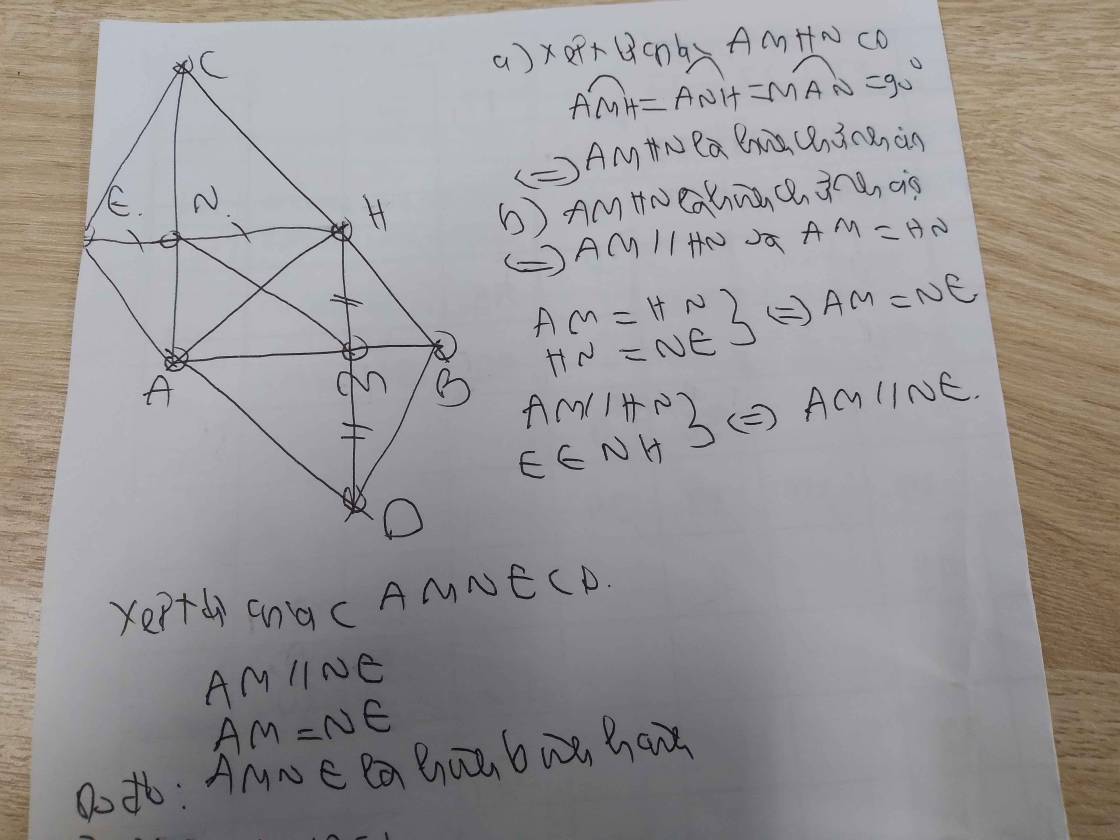 C
E.
N.
H
A
M
B
D
a) Xét tứ giác AMHN có
AMH = ANH = MAN = 90°
<=> AMHN là hình chữ nhật
b) AMHN là hình chữ nhật
<=> AM // HN và AM = HN
AM = HN
HN = NE } <=> AM = NE
AM // HN
E ∈ NH } <=> AM // NE.
Xét tứ giác AMNE có.
AM // NE
AM = NE
Do đó: AMNE là hình bình hành